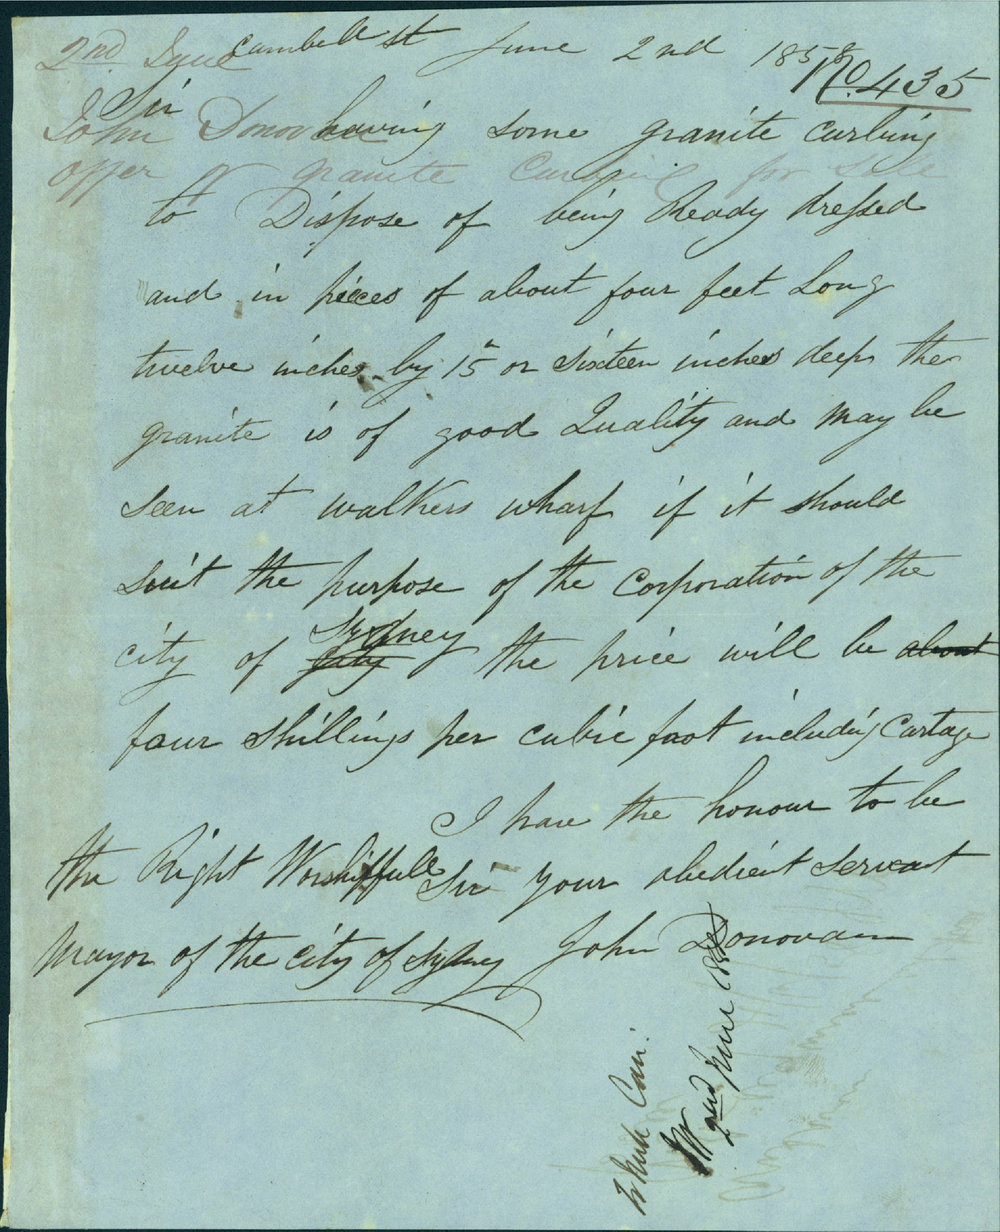 Cambell st June 2nd 1858
No. 435
2nd June
John Donovan
offer of granite Curbing for sale
Sir
having some granite curbing
to Dispose of being Ready dressed
and in pieces of about four feet Long
twelve inches by 15 or sixteen inches deep the
granite is of good Quality and may be
seen at walkers wharf if it should
suit the purpose of the Corporation of the
city of City Sydney the price will be about
four shillings per cubic foot including Cartage
I have the honour to be
Sir your obedient servant
John Donovan
the Right Worshipfull
Mayor of the city of Sydney
2nd June